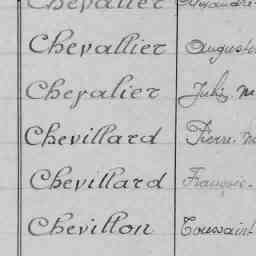 Chevallier
Chevallier Auguste
Chevalier Jules
Chevillard Pierre
Chevillard François
Chevillon Toussaint